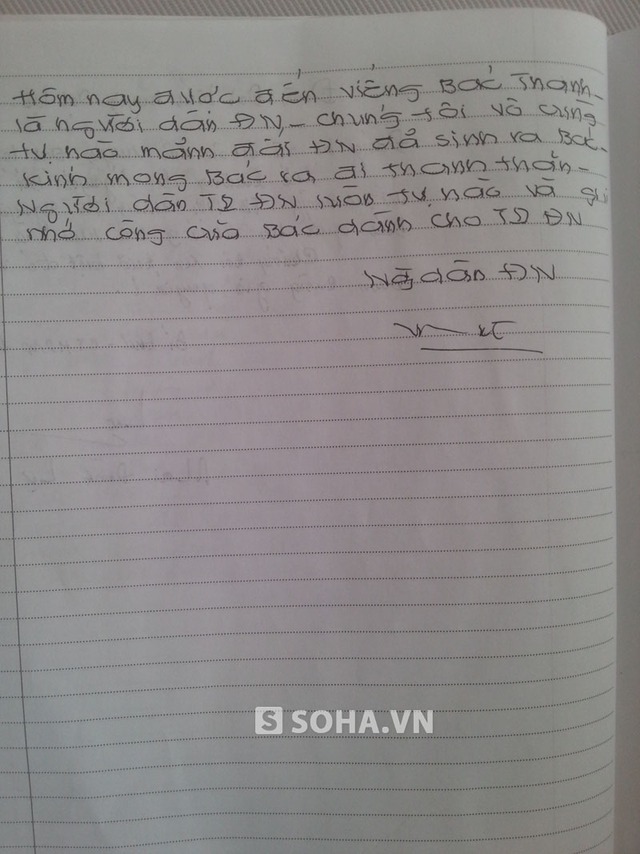 Hôm nay được đến viếng Bác Thanh-
là người dân ĐN - chúng tôi vô cùng
tự hào mảnh đất ĐN đã sinh ra Bác.
Kính mong Bác ra đi thanh thản-
Người dân TP ĐN luôn tự hào và ghi
nhớ công của Bác dành cho TP ĐN
Ng dân ĐN
SOHA.VN